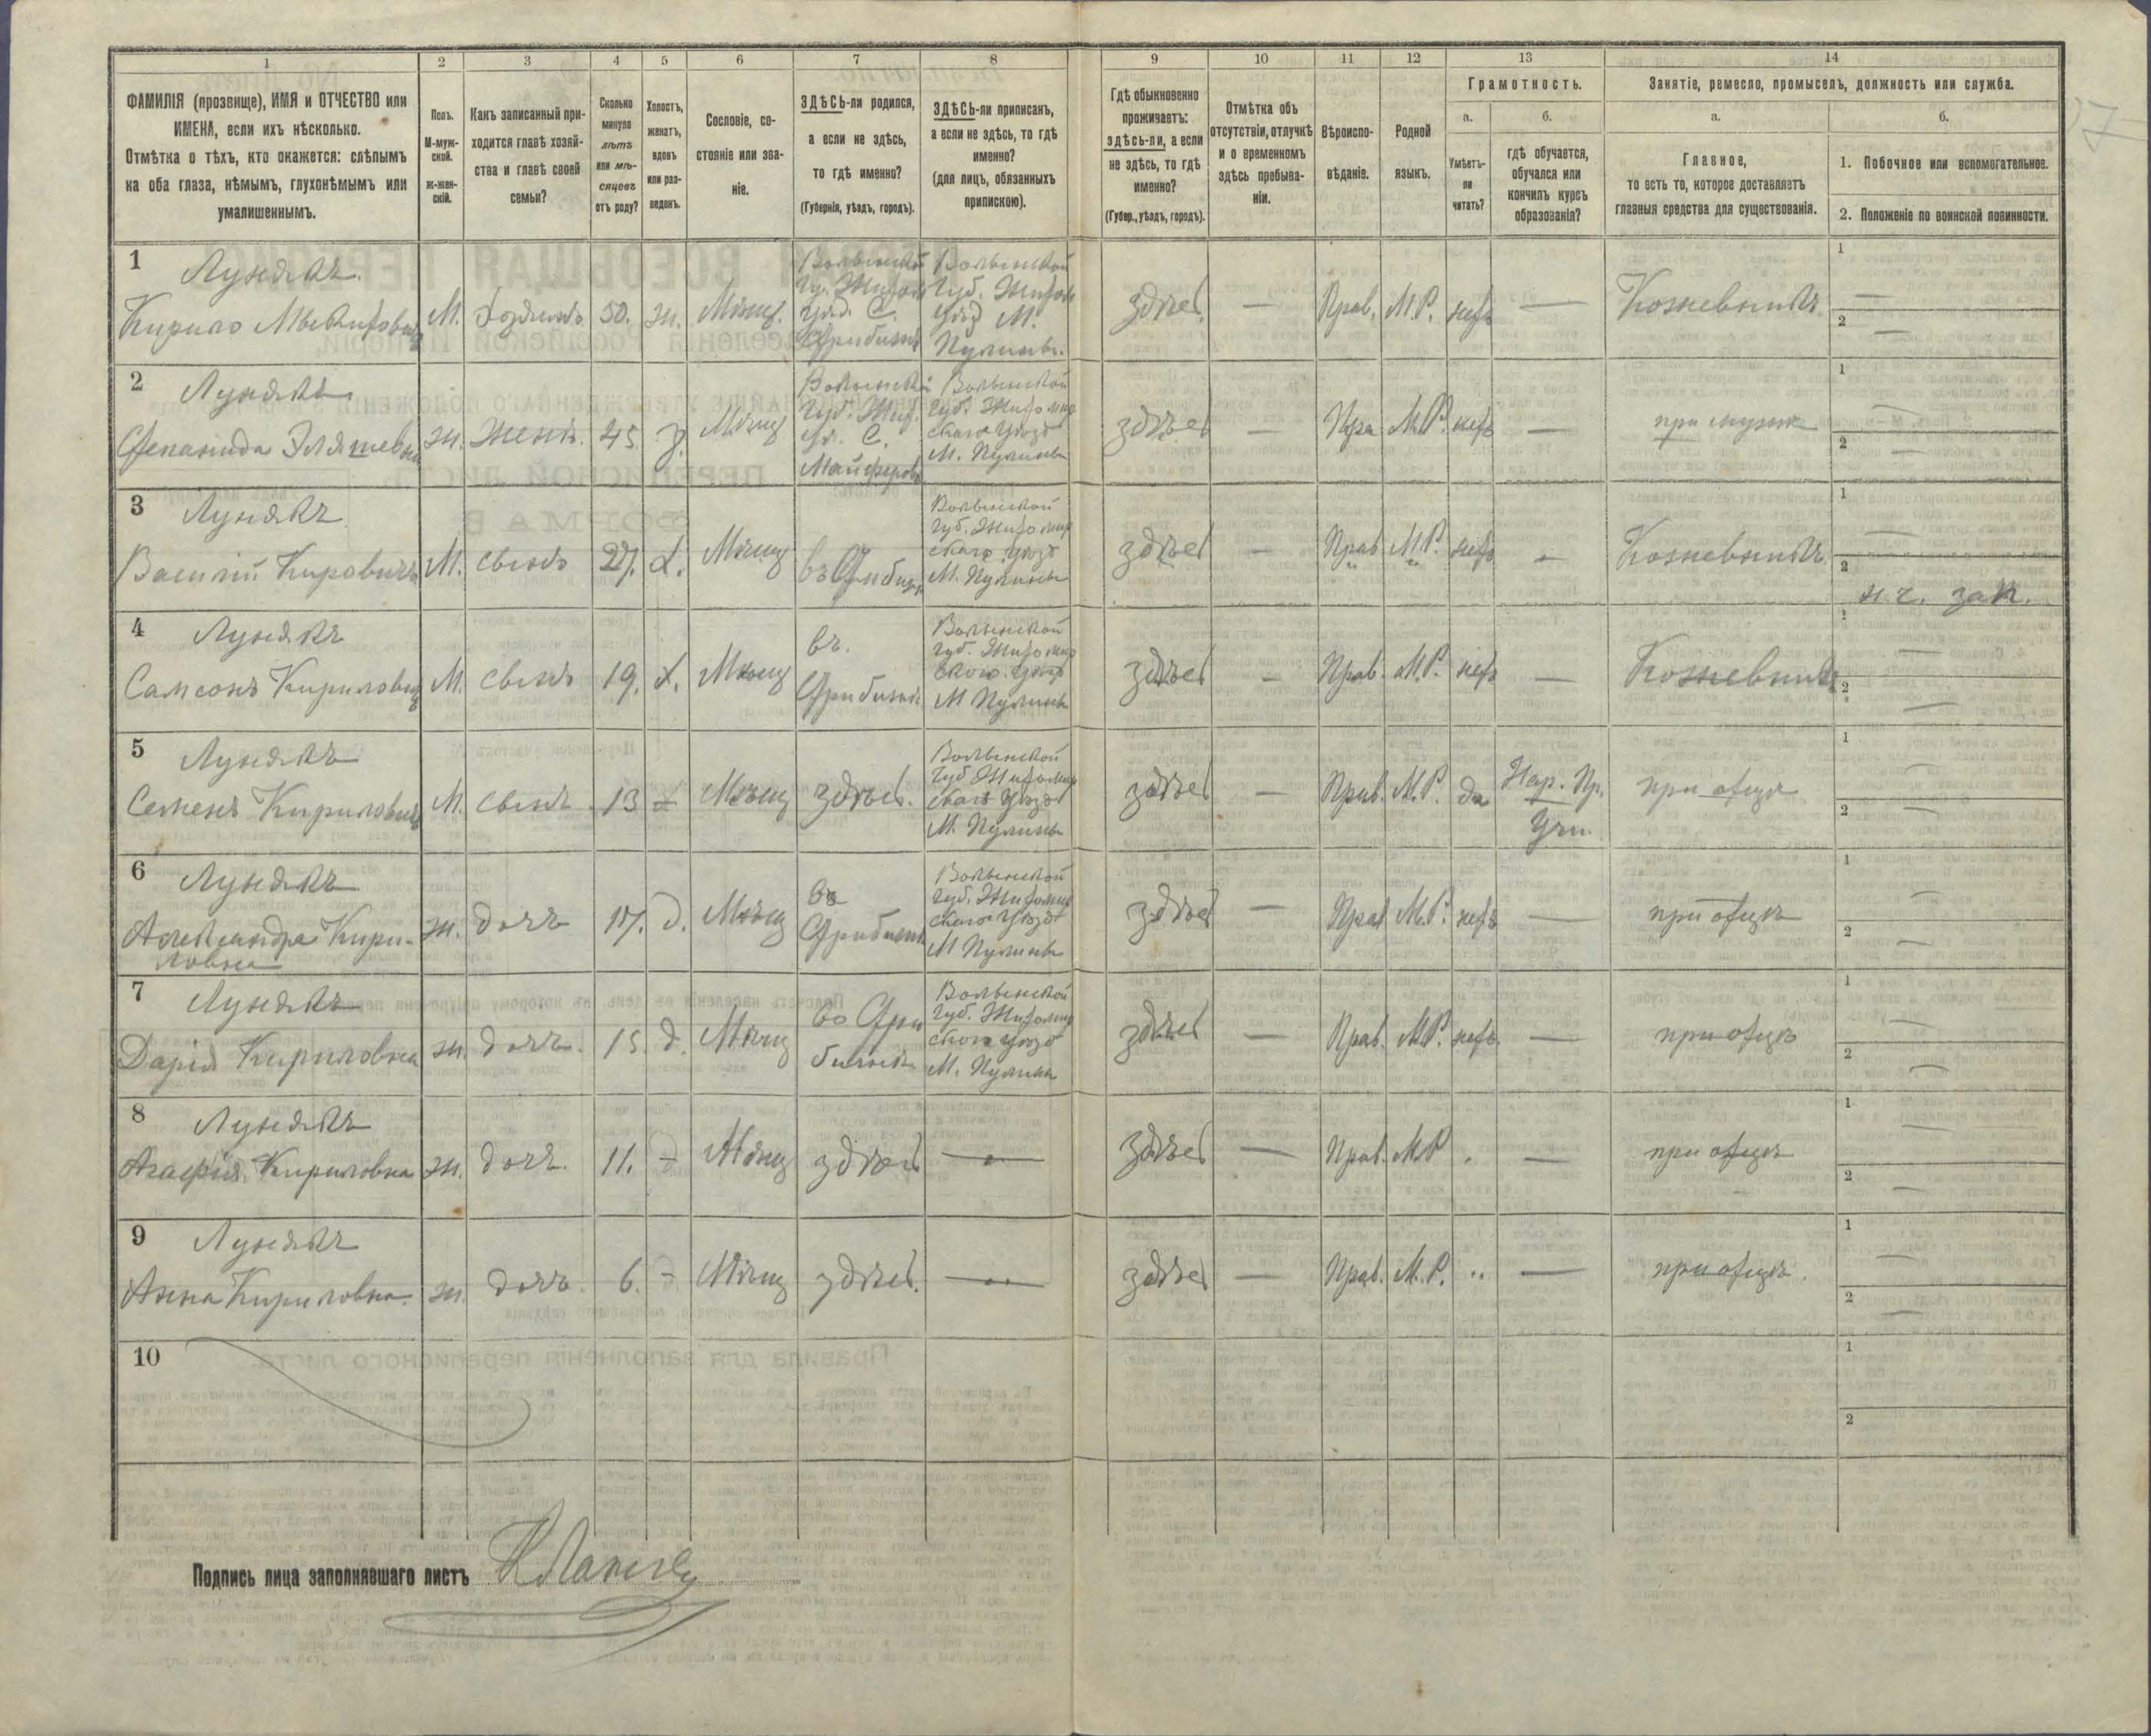 1
2
3
4
5
6
7
8
9
10
11
12
13
14
ФАМИЛІЯ (прозвище), ИМЯ и ОТЧЕСТВО или
ИМЕНА, если ихъ нѣсколько.
Отмѣтка о тѣхъ, кто окажется: слѣпымъ
на оба глаза, нѣмымъ, глухонѣмымъ или
умалишеннымъ.
Полъ.
М-муж-
ской.
ж-жен-
скій.
Какъ записанный при-
ходится главѣ хозяй-
ства и главѣ своей
семьи?
Сколько
минуло
лѣтъ
или мѣ-
сяцевъ
отъ роду?
Холостъ,
женатъ,
вдовъ
или раз-
веденъ.
Сословіе, со-
стояніе или зва-
ніе.
ЗДѢСЬ-ли родился,
а если не здѣсь,
то гдѣ именно?
(Губернія, уѣздъ, городъ).
ЗДѢСЬ-ли приписанъ,
а если не здѣсь, то гдѣ
именно?
(для лицъ, обязанныхъ
припискою).
Гдѣ обыкновенно
проживаетъ:
здѣсь-ли, а если
не здѣсь, то гдѣ
именно?
(Губер., уѣздъ, городъ).
Отмѣтка объ
отсутствіи, отлучкѣ
и о временномъ
здѣсь пребыва-
ніи.
Вѣроиспо-
вѣданіе.
Родной
языкъ.
Грамотность.
а.
Умѣетъ-
ли
читать?
б.
гдѣ обучается,
обучался или
кончилъ курсъ
образованія?
Занятіе, ремесло, промыселъ, должность или служба.
а.
Главное,
то есть то, которое доставляетъ
главныя средства для существованія.
б.
1. Побочное или вспомогательное.
2. Положеніе по воинской повинности.
1
Лунякъ
Кирило
М.
50.
ж.
Мѣщ.
Волынской
Губ. Житом
М.
Пулины.
здѣсь
—
Прав.
М.Р.
нетъ
—
Кожевникъ
1
—
2
—
2
Лунякъ
ж.
жена.
45.
з.
Мѣщ
Уѣ. С.
Волынской
Губ. Житомир
скаго Уѣзд
М. Пулины
здѣсь
—
Пра
М.Р.
нетъ
—
при мужѣ
1
—
2
—
3
Лунякъ
Василій Кировичъ
М.
сынъ
27.
х.
Мѣщ
Волынской
Губ. Житомир
скаго Уѣзд
М. Пулины
здѣсь
—
Прав
М.Р.
нетъ
-
Кожевникъ
1
—
2
н. ч. зап.
4
Лунякъ
Самсонъ Кирилович
М.
сынъ
19.
х.
Мѣщ
въ.
Волынской
Губ. Житомир
скаго Уѣзд
М Пулины
здѣсь
—
Прав.
М.Р.
нетъ
—
Кожевникъ
1
—
2
—
5
Лунякъ
Семенъ Кирилович
М.
сынъ
13
Мѣщ
здѣсь.
Волынской
Губ Житомир
скаго Уѣзд
М. Пулины
здѣсь
—
Прав.
М.Р.
да
Нар. Пр.
Учи.
при отцѣ
1
—
2
—
6
Лунякъ
Александра Кири-
ловна
ж.
дочъ
17.
д.
Мѣщ
въ
Волынской
Губ. Житомир
скаго Уѣзд
М Пулины
здѣсь
—
Прав
М.Р.
нетъ
—
при отцѣ
1
—
2
—
7
Лунякъ
Дарія Кириловна
ж.
дочъ.
15.
д.
Мѣщ
Волынской
Губ. Житомир
скаго Уѣзд
М. Пулины
здѣсь
—
Прав.
М.Р.
нетъ
—
при отцѣ
1
—
2
—
8
Лунякъ
Агафія Кириловна
ж.
дочъ.
11.
-
Мѣщ
здѣсь
—"—
здѣсь
—
Прав.
М.Р
.
—
при отцѣ
1
—
2
—
9
Лунякъ
Анна Кириловна.
ж.
дочъ.
6.
-
Мѣщ
здѣсь.
—"—
здѣсь
—
Прав.
М.Р.
..
—
при отцѣ.
1
—
2
—
10
1
2
Подпись лица заполнявшаго листъ